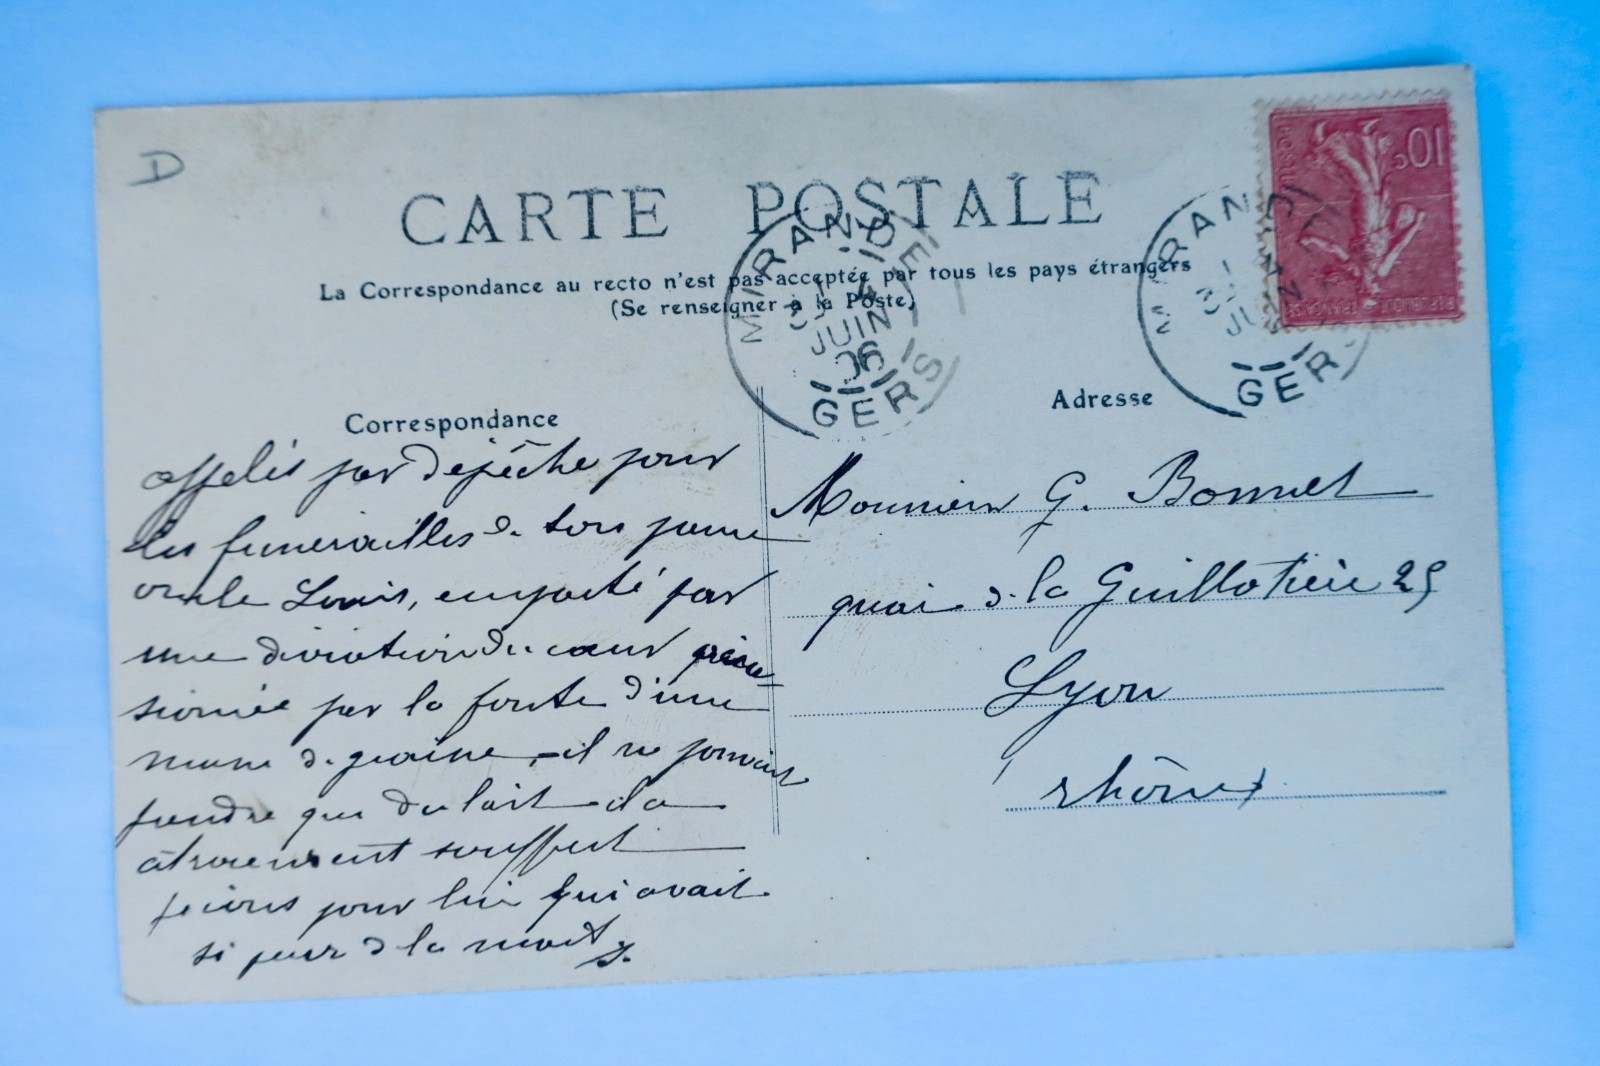 D
CARTE POSTALE
La Correspondance au recto n'est pas acceptée par tous les pays étrangers
(Se renseigner à la Poste)
MIRANDE
4
JUIN
06
GERS
MIRANDE
JUIN
GERS
10c
POSTES
REPUBLIQUE FRANÇAISE
Correspondance
appelés par dépêche pour
les funérailles de ton jeune
oncle Louis, emporté par
une du cœur
par la d'une
de graine, il ne pouvait
prendre que du lait et a
atrocement souffert
prions pour lui qui avait
si peur de la mort
Adresse
Monsieur G. Bonnet
quai de la Guillotière 25
Lyon
rhône